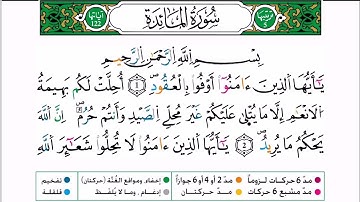 سُورَةُ المَائِدَةِ
آياتها 122
بِسْمِ ٱللَّهِ ٱلرَّحْمَٰنِ ٱلرَّحِيمِ
يَٰٓأَيُّهَا ٱلَّذِينَ ءَامَنُوٓا۟ أَوْفُوا۟ بِٱلْعُقُودِۖ 1 أُحِلَّتْ لَكُم بَهِيمَةُ
ٱلْأَنْعَٰمِ إِلَّا مَا يُتْلَىٰ عَلَيْكُمْ غَيْرَ مُحِلِّى ٱلصَّيْدِ وَأَنتُمْ حُرُمٌۗ إِنَّ ٱللَّهَ
يَحْكُمُ مَا يُرِيدُ 2 يَٰٓأَيُّهَا ٱلَّذِينَ ءَامَنُوا۟ لَا تُحِلُّوا۟ شَعَٰٓئِرَ ٱللَّهِ
مدّ 6 حركات لزوماً مدّ 2 أو 4 أو 6 جوازاً إخفاء، ومواقع الغُنَّة (حركتان) تفخيم
مدّ مشبع 6 حركات مدّ حركتان إدغام، وما لا يُلفظ قلقلة